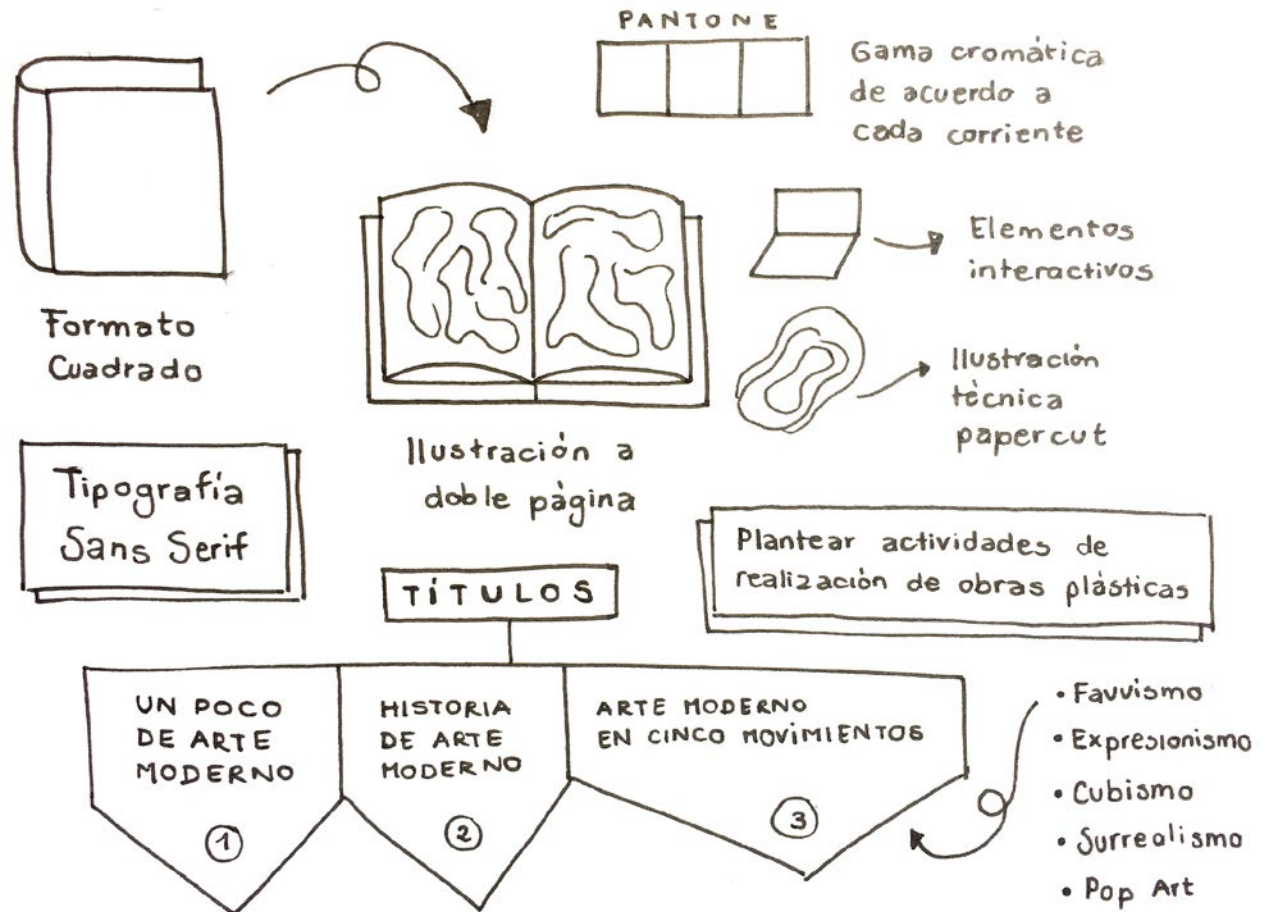 PANTONE
Gama cromática
de acuerdo a
cada corriente
Elementos
interactivos
Formato
Cuadrado
Ilustración
técnica
papercut
Ilustración a
doble página
Tipografía
Sans Serif
Plantear actividades de
realización de obras plásticas
TÍTULOS
UN POCO
DE ARTE
MODERNO
1
HISTORIA
DE ARTE
MODERNO
2
ARTE MODERNO
EN CINCO MOVIMIENTOS
3
• Fauvismo
• Expresionismo
• Cubismo
• Surrealismo
• Pop Art